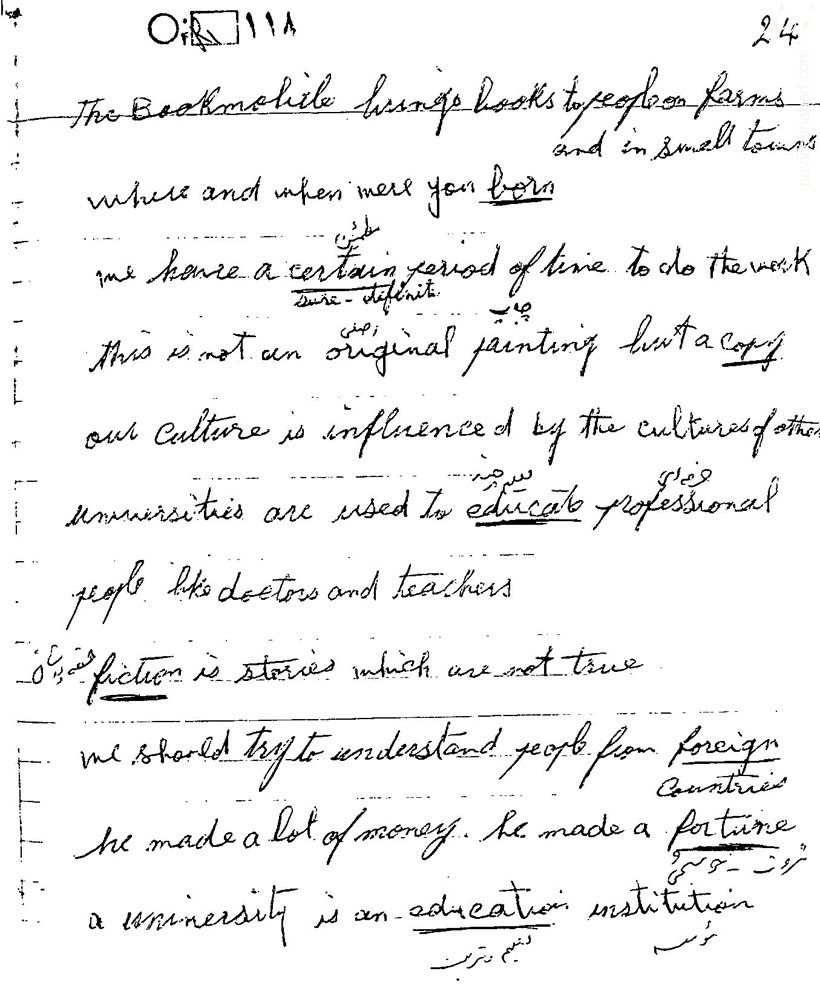 ۱۱۸
24
The Bookmobile brings books to people on farms
and in small towns
where and when were you born
مطمئن
we have a certain period of time to do the work
sure - definite
چاپ
this is not an original painting but a copy
our culture is influenced by the cultures of other
حرفه‌ای
universities are used to educate professional
people like doctors and teachers
fiction is stories which are not true
we should try to understand people from foreign
countries
he made a lot of money. he made a fortune
ثروت -
a university is an education institution
تعلیم و تربیت
موسسه